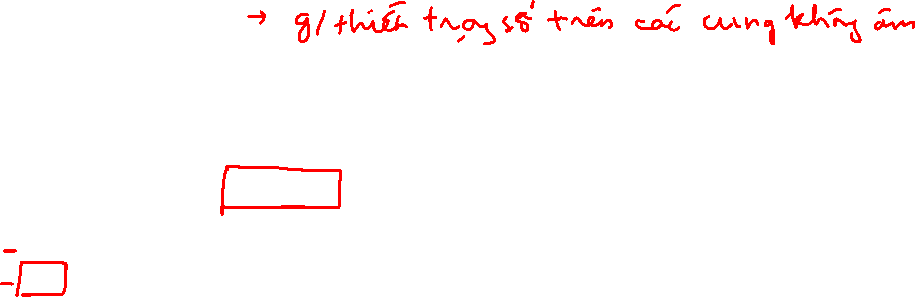 → g/thiết trọng số trên các cung không âm